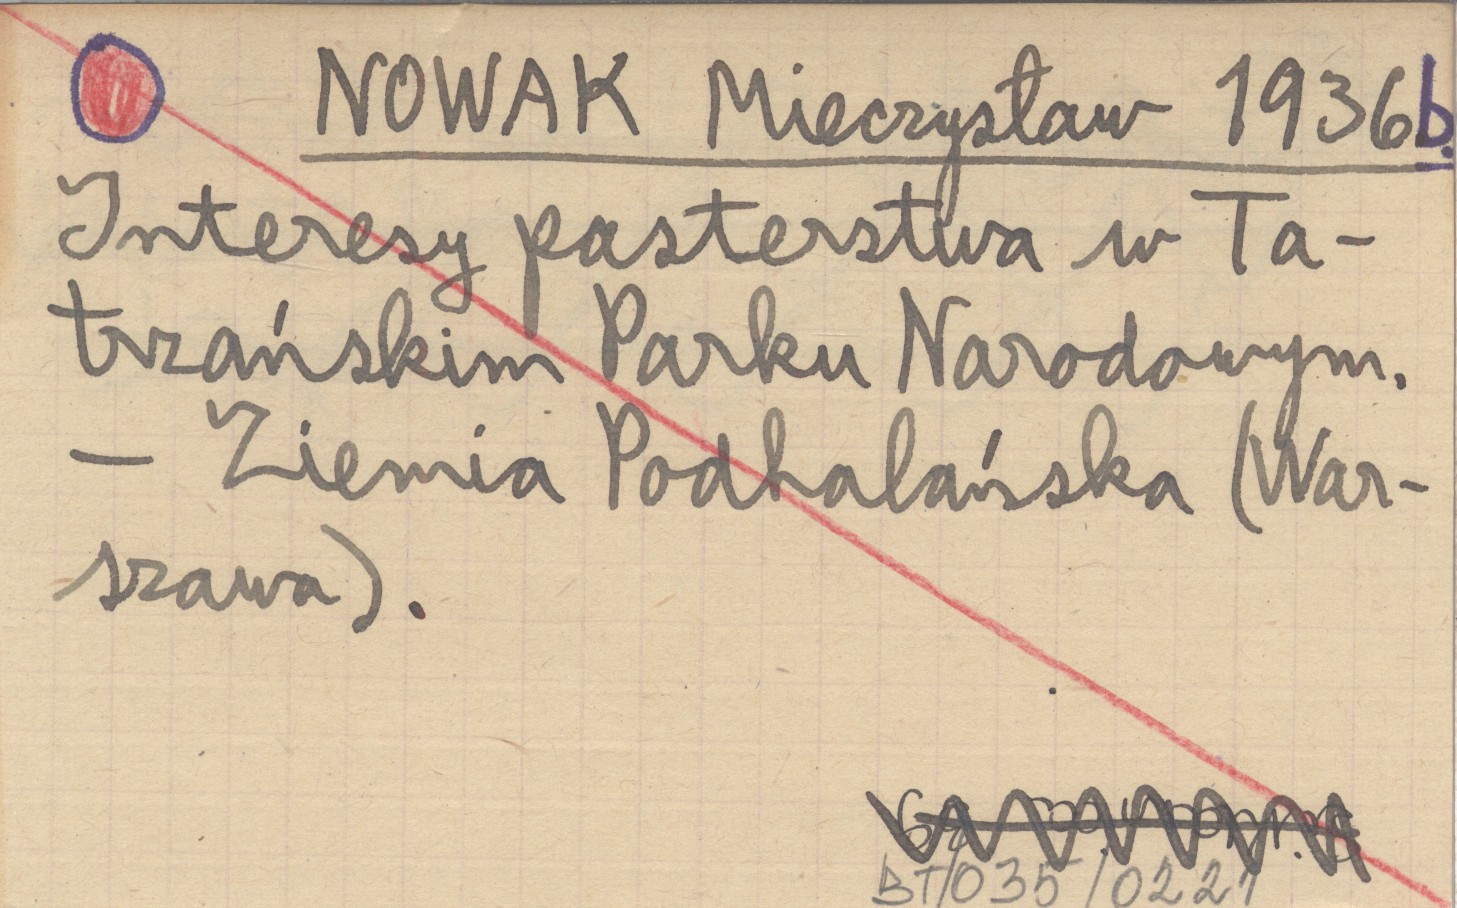 NOWAK Mieczysław 1936b.
Interesy pasterstwa w Ta-
trzańskim Parku Narodowym.
— Ziemia Podhalańska (War-
szawa).
BT/035/0221